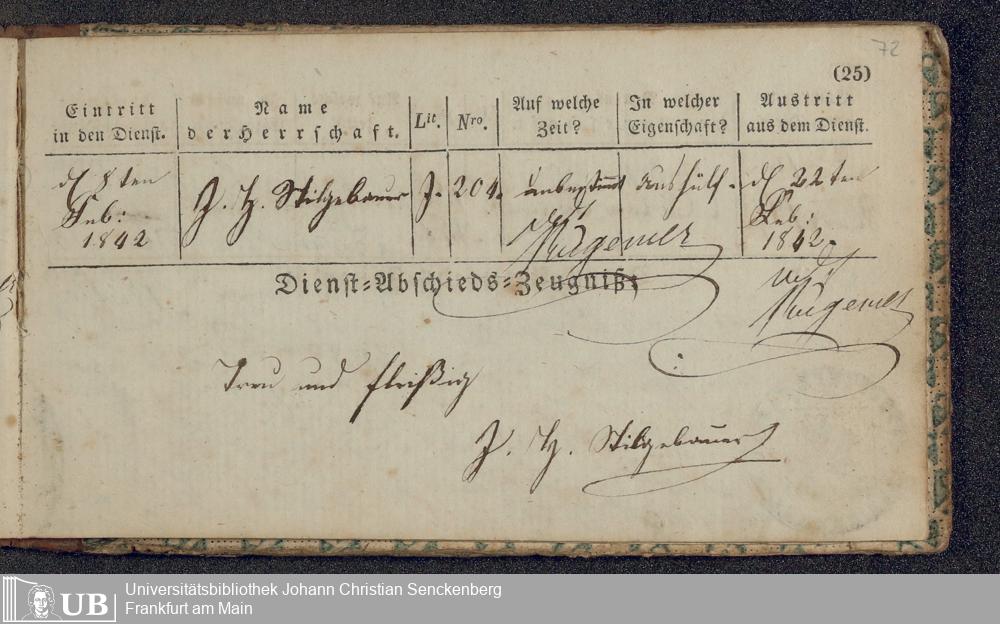 72
(25)
Eintritt in den Dienst.
Name der Herrschaft.
Lit.
Nro.
Auf welche Zeit?
In welcher Eigenschaft?
Austritt aus dem Dienst.
d 8ten
Feb:
1842
J. H. Stilgebauer
J.
204.
unbestimt
Aushülf.
d 22ten
Feb:
1842.
Dienst=Abschieds=Zeugniß:
Treu und fleißig
J. H. Stilgebauer
Universitätsbibliothek Johann Christian Senckenberg
Frankfurt am Main
UB